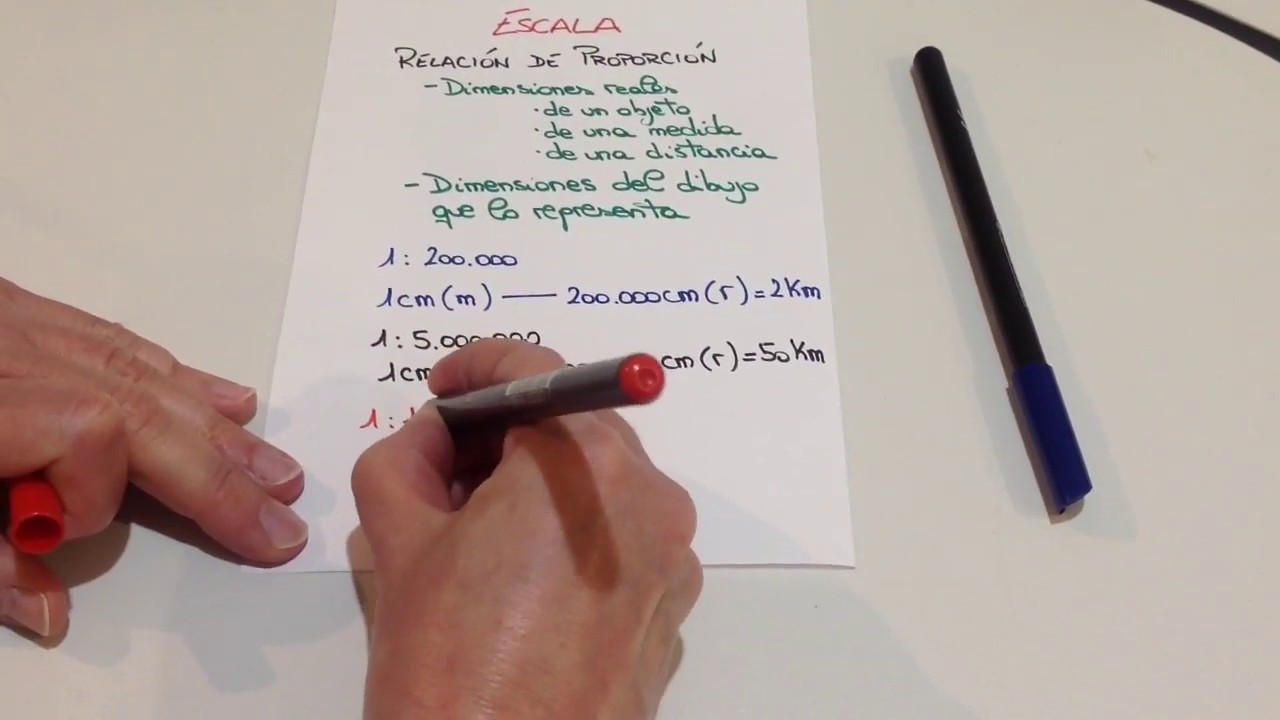 ESCALA
RELACIÓN DE PROPORCIÓN
- Dimensiones reales
· de un objeto
· de una medida
· de una distancia
- Dimensiones del dibujo
que lo representa
1: 200.000
1cm (m) — 200.000cm (r) = 2 Km
1: 5.000.000
1cm cm (r) = 50 Km
1: